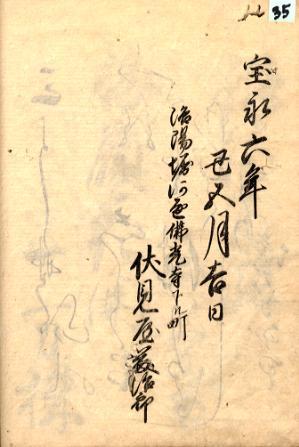 35
宝永六年
丑五月吉日
洛陽堀河通佛光寺下ル町
伏見屋藤治郎